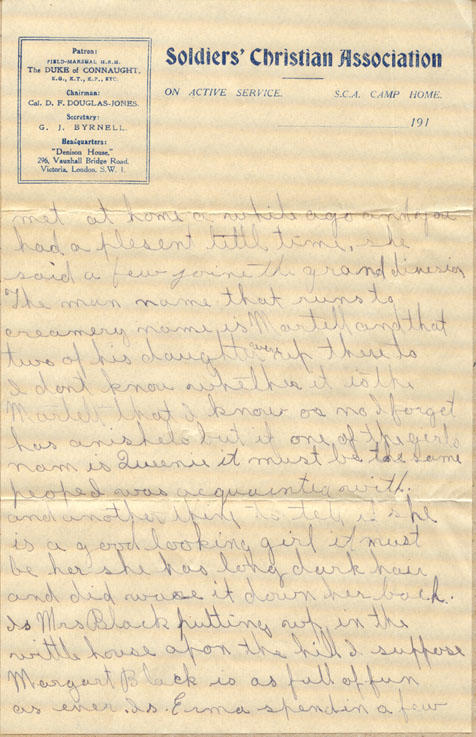 Patron:
FIELD-MARSHAL H.R.H.
The DUKE of CONNAUGHT,
K.G., K.T., K.P., ETC.
Chairman:
Col. D. F. DOUGLAS-JONES.
Secretary:
G. J. BYRNELL.
Headquarters:
"Denison House,"
296, Vauxhall Bridge Road,
Victoria, London. S.W. 1.
Soldiers' Christian Association
ON ACTIVE SERVICE. S.C.A. CAMP HOME.
191
met at home a while ago and you
had a plesent tittl time, she
said a few joine the grand
The man name that runs to
creamery name is Martell and that
two of his daughter were up there to
I dont know whether it is the
Martell that I know or no I forget
has but if one of the girls
nam is Queenie it must be the same
peopel was acquainted with.
and another thing to tell is she
is a good looking girl it must
be her she has long dark hair
and did wase it down her back.
Is Mrs Black putting up in the
wittle house apon the hill I suppose
Margart Black is as full of fun
as ever. Is Erma spendin a few